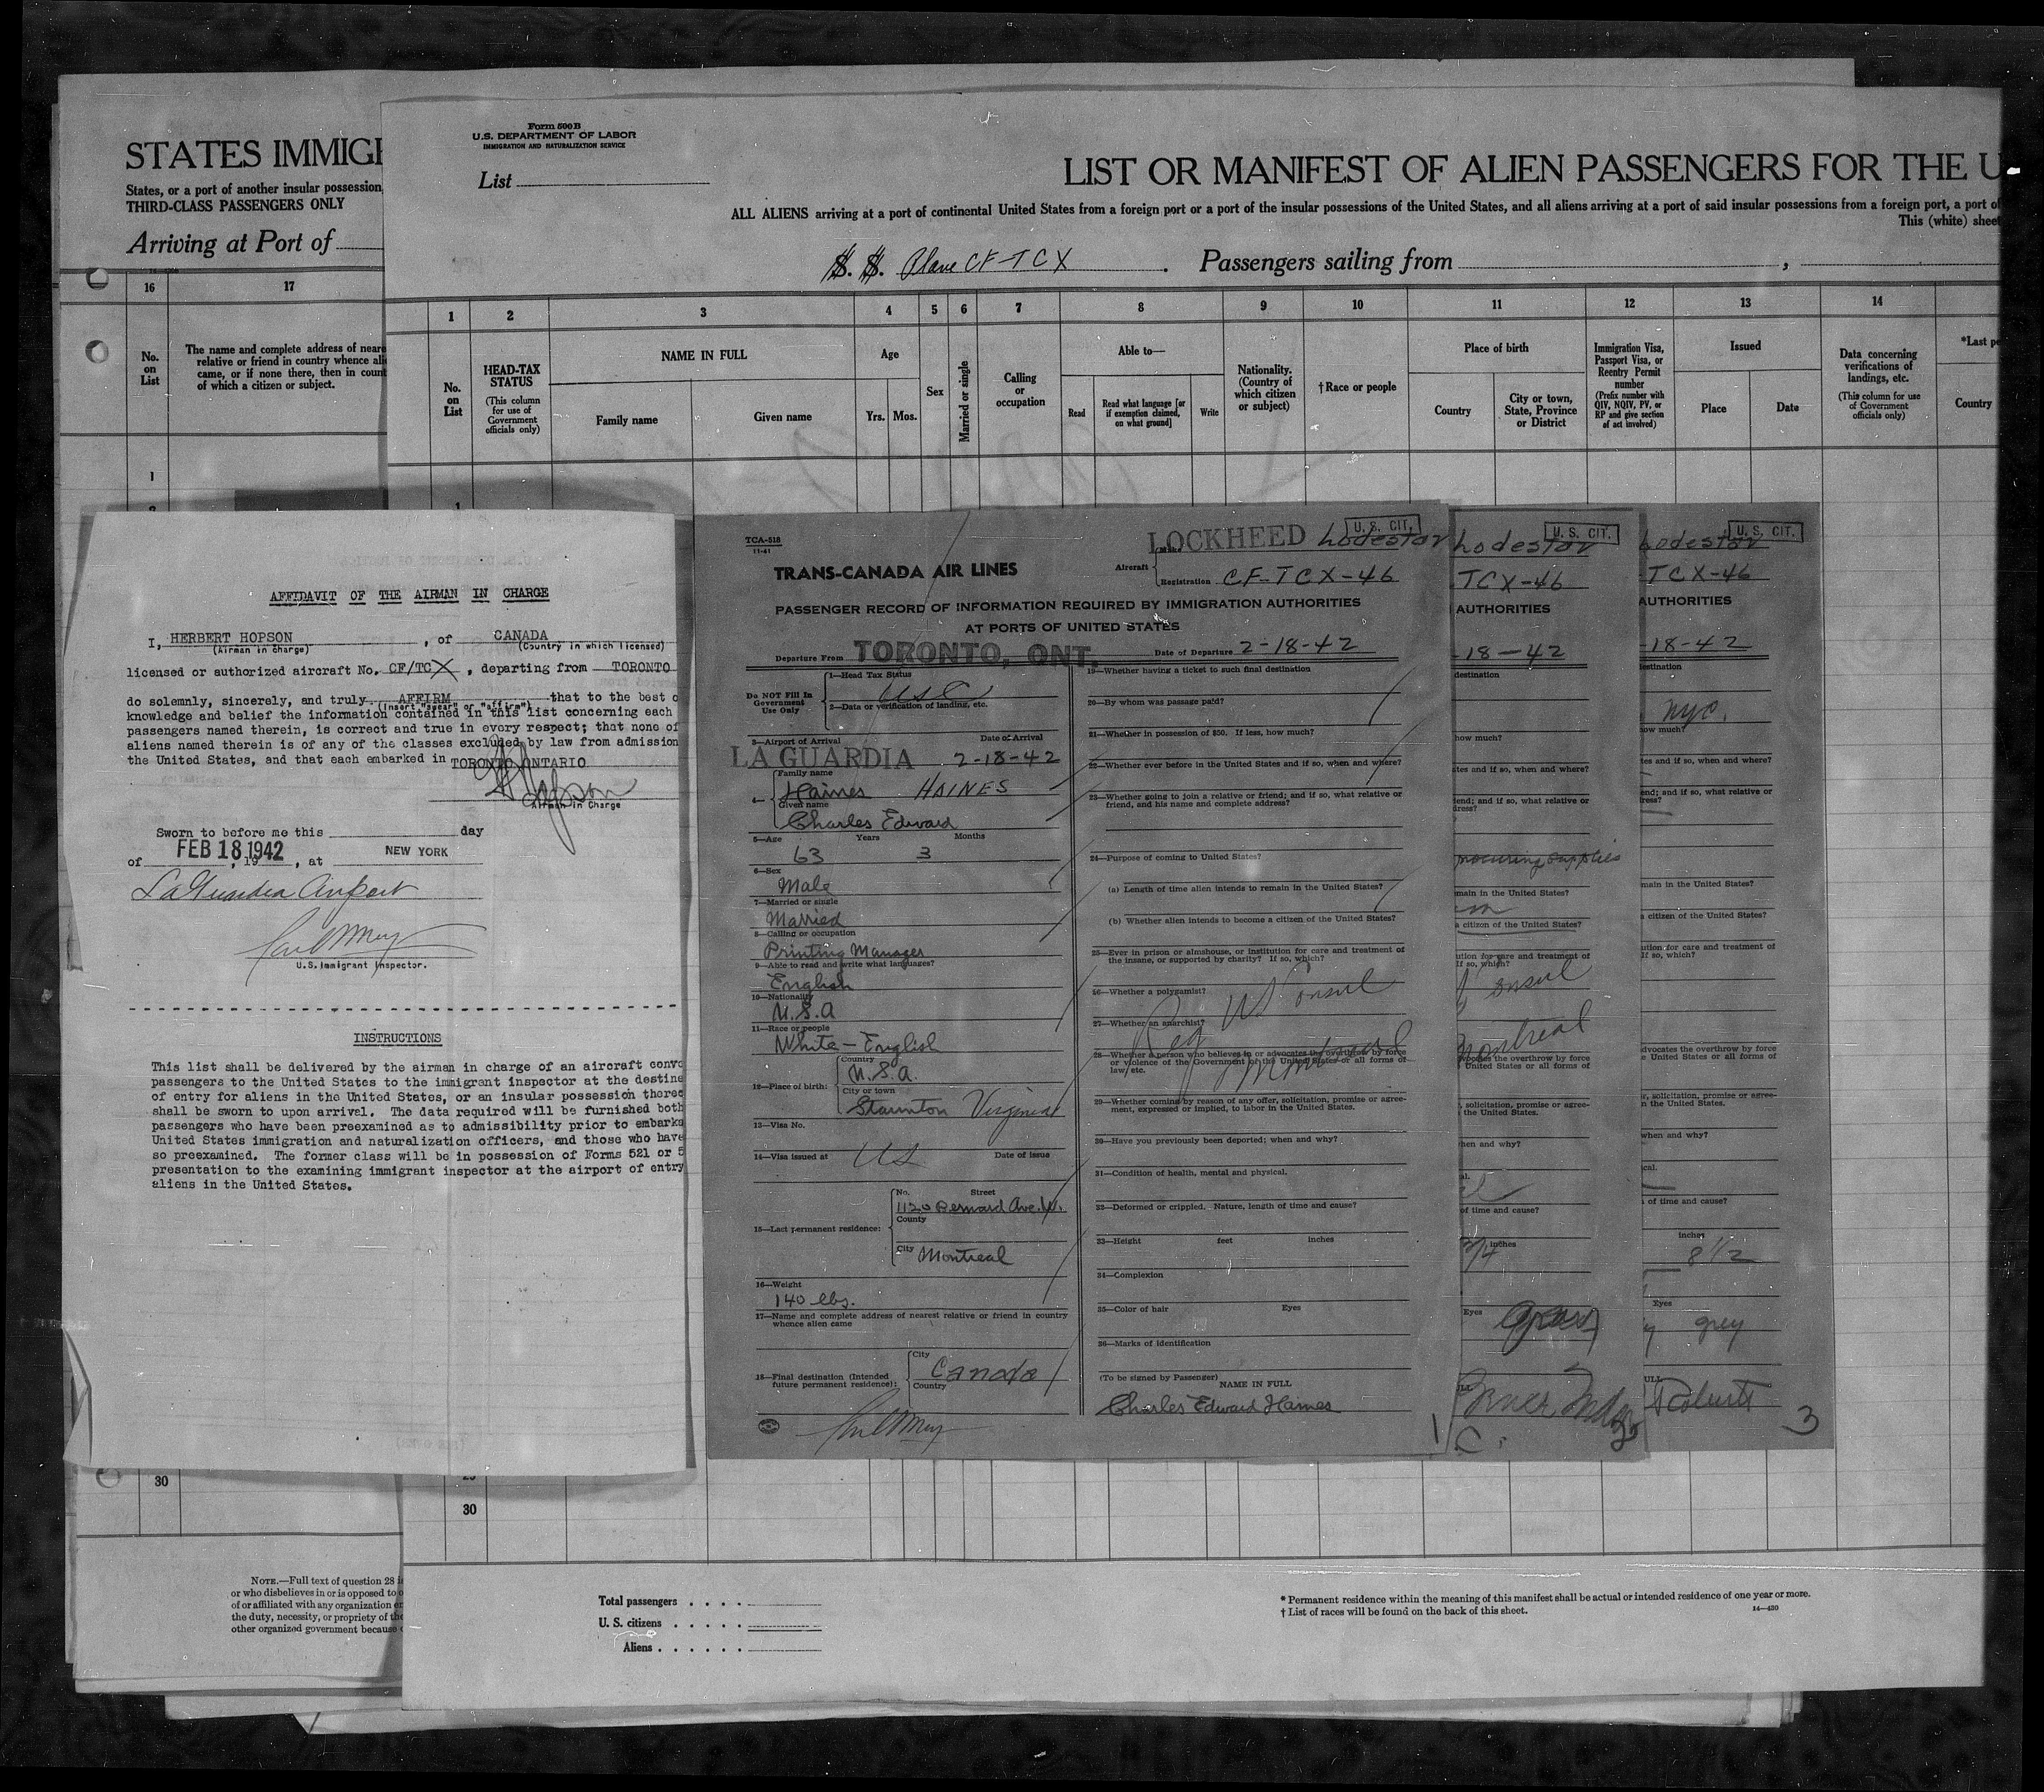 STATES IMMIGR
States, or a port of another insular possession,
THIRD-CLASS PASSENGERS ONLY
Arriving at Port of
16 17
No. on List
The name and complete address of neare
relative or friend in country whence ali
came, or if none there, then in count
of which a citizen or subject.
1
30
NOTE.—Full text of question 28 i
or who disbelieves in or is opposed to o
of or affiliated with any organization en
the duty, necessity, or propriety of the
other organized government because o
Form 500 B
U.S. DEPARTMENT OF LABOR
IMMIGRATION AND NATURALIZATION SERVICE
List
LIST OR MANIFEST OF ALIEN PASSENGERS FOR THE U
ALL ALIENS arriving at a port of continental United States from a foreign port or a port of the insular possessions of the United States, and all aliens arriving at a port of said insular possessions from a foreign port, a port of
This (white) sheet
S. S. Plane CF-TCX . Passengers sailing from ,
1 2 3 4 5 6 7 8 9 10 11 12 13 14
No. on List
HEAD-TAX STATUS
(This column for use of Government officials only)
NAME IN FULL
Family name Given name
Age
Yrs. Mos.
Sex
Married or single
Calling or occupation
Able to—
Read
Read what language [or if exemption claimed, on what ground]
Write
Nationality. (Country of which citizen or subject)
†Race or people
Place of birth
Country
City or town, State, Province or District
Immigration Visa, Passport Visa, or Reentry Permit number
(Prefix number with QIV, NQIV, PV, or RP and give section of act involved)
Issued
Place Date
Data concerning verifications of landings, etc.
(This column for use of Government officials only)
*Last pe
Country
1
30
Total passengers . . . .
U. S. citizens . . . . .
Aliens . . . . . .
* Permanent residence within the meaning of this manifest shall be actual or intended residence of one year or more.
† List of races will be found on the back of this sheet.
14—430
AFFIDAVIT OF THE AIRMAN IN CHARGE
I, HERBERT HOPSON , of CANADA
(Airman in Charge) (Country in which licensed)
licensed or authorized aircraft No. CF/TCX , departing from TORONTO
do solemnly, sincerely, and truly AFFIRM that to the best o
(Insert "swear" or "affirm")
knowledge and belief the information contained in this list concerning each
passengers named therein, is correct and true in every respect; that none of
aliens named therein is of any of the classes excluded by law from admission
the United States, and that each embarked in TORONTO ONTARIO
H Hopson
Airman in Charge
Sworn to before me this day
of FEB 18 1942 , 19 , at NEW YORK
LaGuardia Airport
U.S. Immigrant Inspector.
INSTRUCTIONS
This list shall be delivered by the airman in charge of an aircraft conve
passengers to the United States to the immigrant inspector at the destine
of entry for aliens in the United States, or an insular possession thereo
shall be sworn to upon arrival. The data required will be furnished both
passengers who have been preexamined as to admissibility prior to embarka
United States immigration and naturalization officers, and those who have
so preexamined. The former class will be in possession of Forms 521 or 5
presentation to the examining immigrant inspector at the airport of entry
aliens in the United States.
TCA-518
11-41
TRANS-CANADA AIR LINES
U. S. CIT.
Aircraft
Make LOCKHEED Lodestar
Registration CF-TCX-46
PASSENGER RECORD OF INFORMATION REQUIRED BY IMMIGRATION AUTHORITIES
AT PORTS OF UNITED STATES
Departure From TORONTO, ONT. Date of Departure 2-18-42
Do NOT Fill In Government Use Only
1—Head Tax Status
USC
2—Data or verification of landing, etc.
3—Airport of Arrival Date of Arrival
LA GUARDIA 2-18-42
4—
Family name
Haines HAINES
Given name
Charles Edward
5—Age Years Months
63 3
6—Sex
Male
7—Married or single
Married
8—Calling or occupation
Printing Manager
9—Able to read and write what languages?
English
10—Nationality
U.S.A
11—Race or people
White - English
12—Place of birth:
Country
U.S.A.
City or town
Staunton Virginia
13—Visa No.
14—Visa issued at US Date of Issue
15—Last permanent residence:
No. Street
1120 Bernard Ave. W.
County
City Montreal
16—Weight
140 lbs.
17—Name and complete address of nearest relative or friend in country
whence alien came
18—Final destination (Intended
future permanent residence):
City
Canada
Country
19—Whether having a ticket to such final destination
20—By whom was passage paid?
21—Whether in possession of $50. If less, how much?
22—Whether ever before in the United States and if so, when and where?
23—Whether going to join a relative or friend; and if so, what relative or
friend, and his name and complete address?
24—Purpose of coming to United States?
(a) Length of time alien intends to remain in the United States?
(b) Whether alien intends to become a citizen of the United States?
25—Ever in prison or almshouse, or institution for care and treatment of
the insane, or supported by charity? If so, which?
26—Whether a polygamist?
Reg US Consul
27—Whether an anarchist?
Montreal
28—Whether a person who believes in or advocates the overthrow by force
or violence of the Government of the United States or all forms of
law, etc.
29—Whether coming by reason of any offer, solicitation, promise or agree-
ment, expressed or implied, to labor in the United States.
30—Have you previously been deported; when and why?
31—Condition of health, mental and physical.
32—Deformed or crippled. Nature, length of time and cause?
33—Height feet inches
34—Complexion
35—Color of hair Eyes
36—Marks of identification
(To be signed by Passenger)
NAME IN FULL
Charles Edward Haines
1
U. S. CIT.
Lodestar
TCX-46
AUTHORITIES
-18-42
destination
how much?
tes and if so, when and where?
end; and if so, what relative or
dress?
procuring supplies
main in the United States?
a citizen of the United States?
ution for care and treatment of
If so, which?
Consul
Montreal
dvocates the overthrow by force
United States or all forms of
, solicitation, promise or agree-
the United States.
hen and why?
al.
of time and cause?
3/4 inches
Eyes
U. S. CIT.
Lodestar
-TCX-46
AUTHORITIES
-18-42
estination
NYC.
ow much?
tes and if so, when and where?
end; and if so, what relative or
dress?
main in the United States?
a citizen of the United States?
ution for care and treatment of
If so, which?
dvocates the overthrow by force
e United States or all forms of
r, solicitation, promise or agree-
n the United States.
when and why?
cal.
of time and cause?
inches
8 1/2
Eyes
grey
Roberts
3